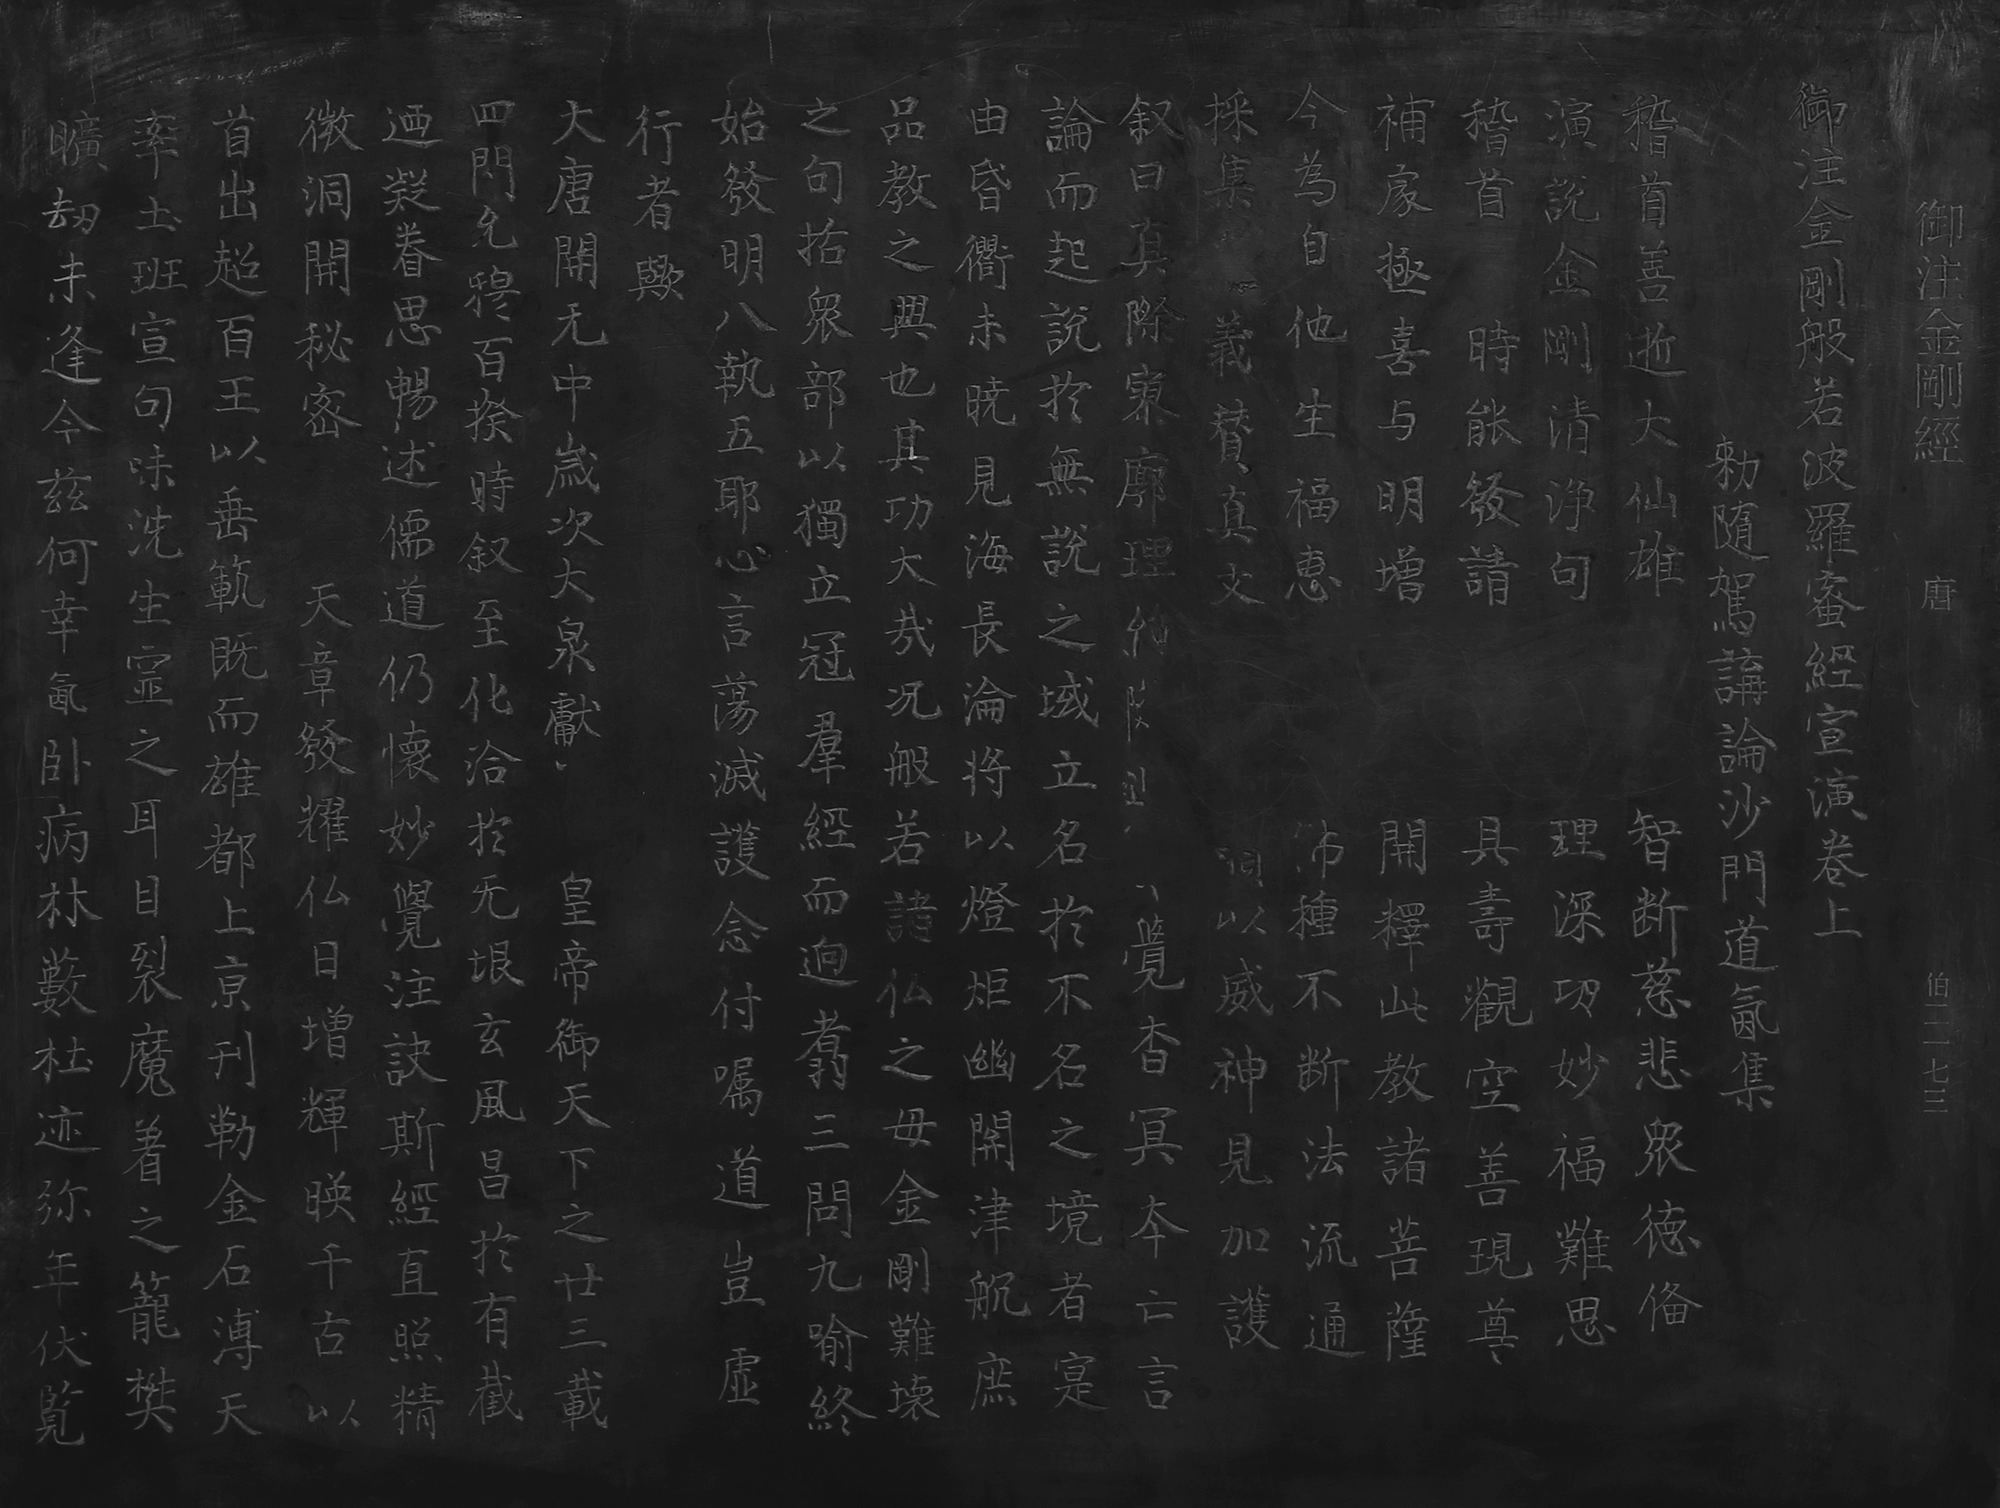 御注金剛經 唐 伯二一七三
御注金剛般若波羅蜜經宣演卷上
勑随駕講論沙門道氤集
稽首善逝大仙雄 智断慈悲衆徳俻
演說金剛清浄句 理深功妙福難思
稽首 時能發請 具壽觀空善現尊
補處極喜与明增 開釋此教諸菩薩
今為自他生福恵 種不断法流通
採集 義賛真文 以威神見加護
叙曰真際寥廓理 覺杳冥夲亡言
論而起說扵無說之域立名扵不名之境者寔
由昏衢未暁見海長淪将以燈炬幽關津舩庶
品教之興也其功大㦲况般若諸仏之毋金剛難壊
之句括衆部以獨立冠羣經而逈翥三問九喻終
始發明八執五耶心言蕩滅護念付嘱道豈虛
行者歟
大唐開无中歲次大泉獻 皇帝御天下之廿三載
四門允穆百揆時叙至化洽扵无垠玄風昌扵有截
迺凝眷思暢述儒道仍懐妙覺注訣斯經直照精
微洞開秘宻 天章發耀仏日增輝暎千古以
首出超百王以垂範既而雄都上京刊勒金石溥天
率土班宣句味洗生靈之耳目裂魔着之籠樊
曠劫未逢今兹何幸氤卧病林藪杜迹弥年伏覧